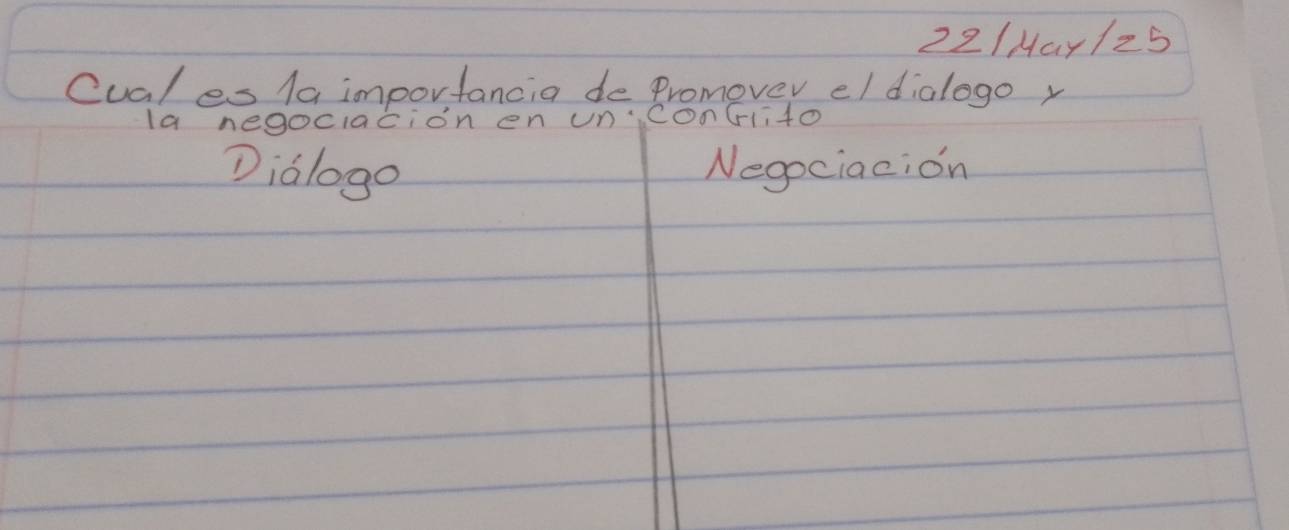 22/May/25
Cual es la importancia de Promover el dialogo y
la negociación en un conflito
Diálogo
Negociación